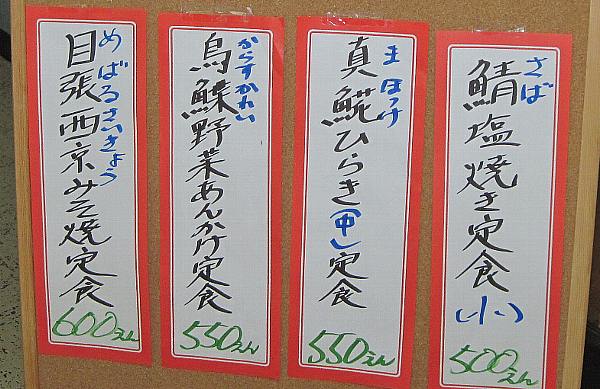 さば
鯖塩焼き定食(小)
500えん
まほっけ
真𩸽ひらき(中)定食
550えん
からすかれい
鳥鰈野菜あんかけ定食
550えん
めばるさいきょう
目張西京みそ焼定食
600えん